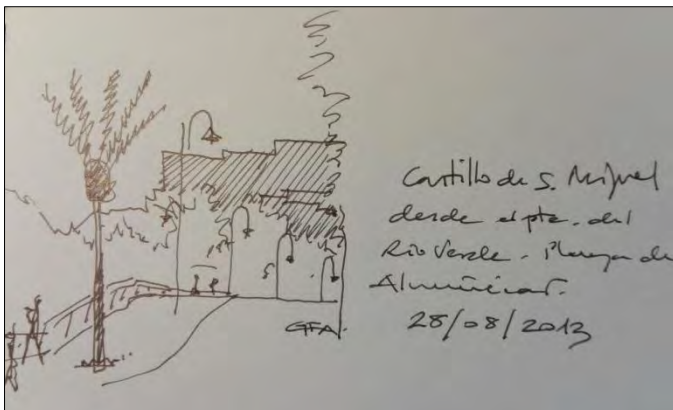 Castillo de S. Miguel
desde el pte. del
Rio Verde. Playa de
Almuñecar.
28/08/2013
GFA.